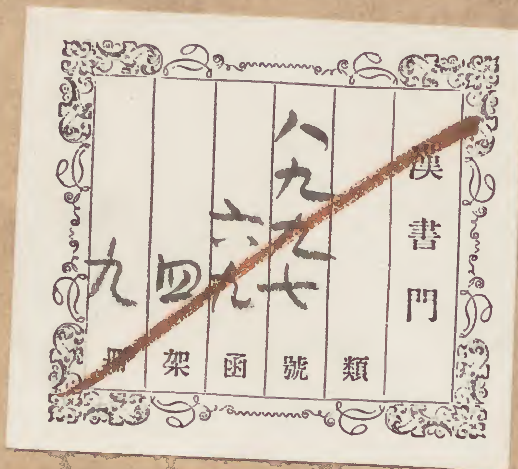 漢書門
類
八九九七號
六九函
四架
九冊